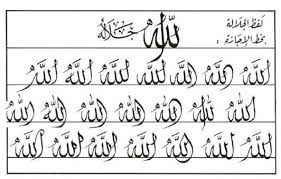 لفظ الجلالة
بخط الإجازة :
الله جل جلاله
الله الله الله الله الله الله الله
الله الله الله الله الله الله الله
الله الله الله الله الله الله الله